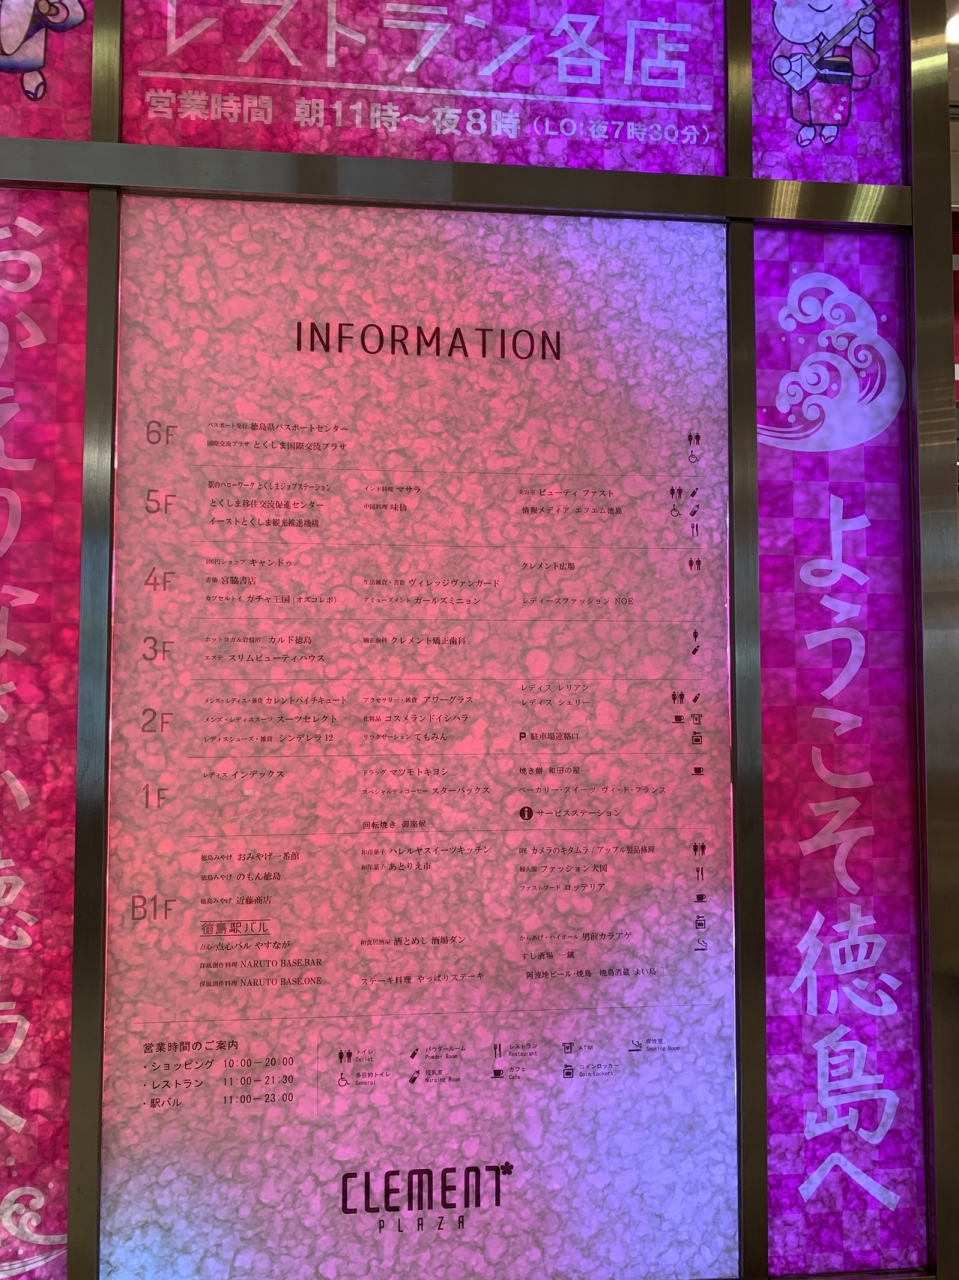 レストラン各店
営業時間 朝11時～夜8時 (LO:夜7時30分)
INFORMATION
6F
パスポート発行 徳島県パスポートセンター
国際交流プラザ とくしま国際交流プラザ
5F
駅のハローワーク とくしまジョブステーション
インド料理 マサラ
美容室 ビューティ ファスト
とくしま移住交流促進センター
中国料理 味仙
情報メディア エフエム徳島
イーストとくしま観光推進機構
4F
100円ショップ キャンドゥ
クレメント広場
書籍 宮脇書店
生活雑貨・書籍 ヴィレッジヴァンガード
カプセルトイ ガチャ王国 (オズコレボ)
アミューズメント ガールズミニョン
レディースファッション NOE
3F
ホットヨガ&岩盤浴 カルド徳島
矯正歯科 クレメント矯正歯科
エステ スリムビューティハウス
2F
メンズ・レディス・雑貨 カレントバイチキュート
アクセサリー・雑貨 アワーグラス
レディス レリアン
レディス シェリー
メンズ・レディススーツ スーツセレクト
化粧品 コスメランドイシハラ
レディスシューズ・雑貨 シンデレラ12
リラクゼーション てもみん
P 駐車場連絡口
1F
レディス インデックス
ドラッグ マツモトキヨシ
焼き餅 和田の屋
スペシャルティコーヒー スターバックス
ベーカリー・スイーツ ヴィ・ド・フランス
回転焼き 御座候
i サービスステーション
B1F
徳島みやげ おみやげ一番館
和洋菓子 ハレルヤスイーツキッチン
DPE カメラのキタムラ / アップル製品修理
徳島みやげ のもん徳島
和洋菓子 あとりえ市
婦人服 ファッション大岡
ファストフード ロッテリア
徳島みやげ 近藤商店
徳島駅バル
点心 点心バル やすなが
和食居酒屋 酒とめし 酒場ダン
からあげ・ハイボール 男前カラアゲ
洋風創作料理 NARUTO BASE.BAR
すし酒場 一鐵
洋風創作料理 NARUTO BASE.ONE
ステーキ料理 やっぱりステーキ
阿波地ビール・焼鳥 焼鳥酒蔵 よい島
営業時間のご案内
・ショッピング 10:00－20:00
・レストラン 11:00－21:30
・駅バル 11:00－23:00
トイレ Toilet
パウダールーム Powder Room
レストラン Restaurant
ATM
喫煙室 Smoking Room
多目的トイレ General
授乳室 Nursing Room
カフェ Cafe
コインロッカー Coin Lockers
CLEMENT
PLAZA
ようこそ徳島へ